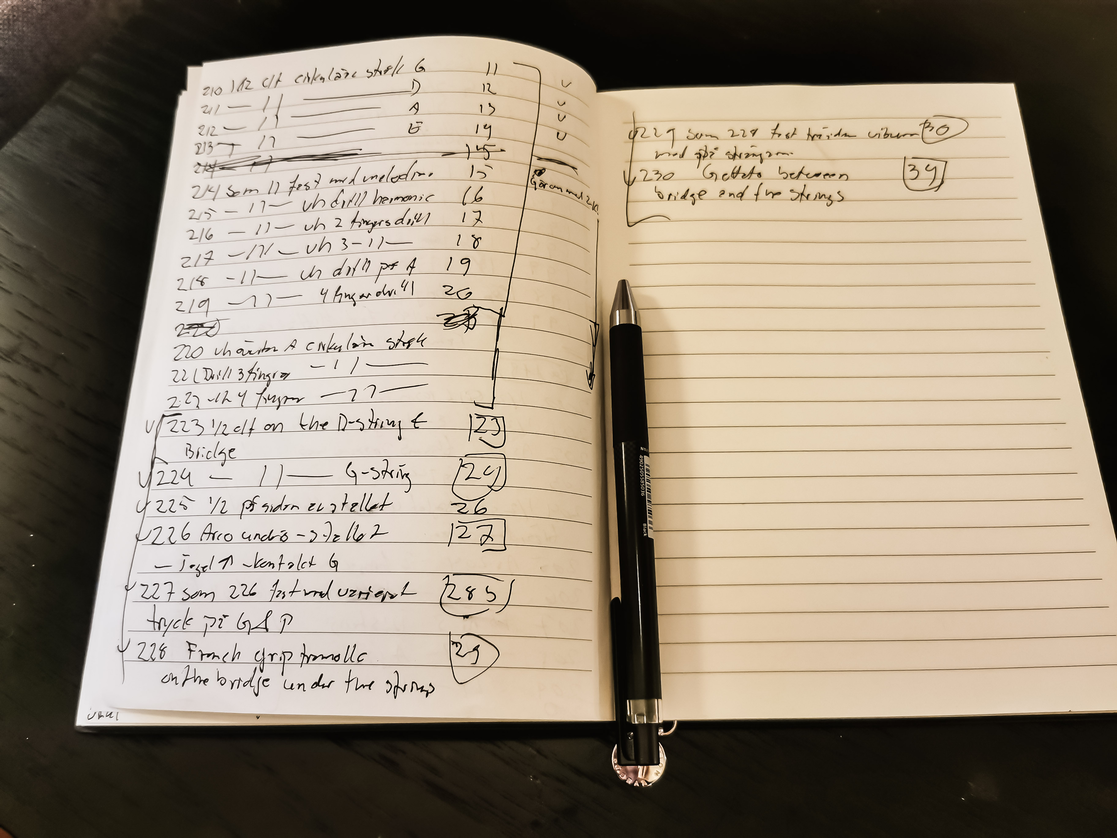 210 1/2 clt cirkulära stråk G 11
211 — 11 — D 12
212 — 11 — A 13
213 — 11 — E 14
15
214 som 11 fast med 15
215 — 11 — vh drill harmonic 16
216 — 11 — vh 2 fingers drill 17
217 — 11 — vh 3 — 11 — 18
218 — 11 — vh drill på A 19
219 — 11 — 4 finger drill 20
220
220 vh A cirkulära stråk
221 Drill 3 fingrar — 11 —
222 vh 4 fingrar — 11 —
223 1/2 clt on the D-string &
Bridge
23
224 — 11 — G-string 24
225 1/2 på sidan av stallet 26
226 Arco under stallet 27
— Tagel ↑ - kontakt G
227 som 226 fast med varierat 285
tryck på G & D
228 French grip tremollo 29
on the bridge under the strings
229 som 228 fast 30
med på strängen
230 Gettato between 34
bridge and the strings